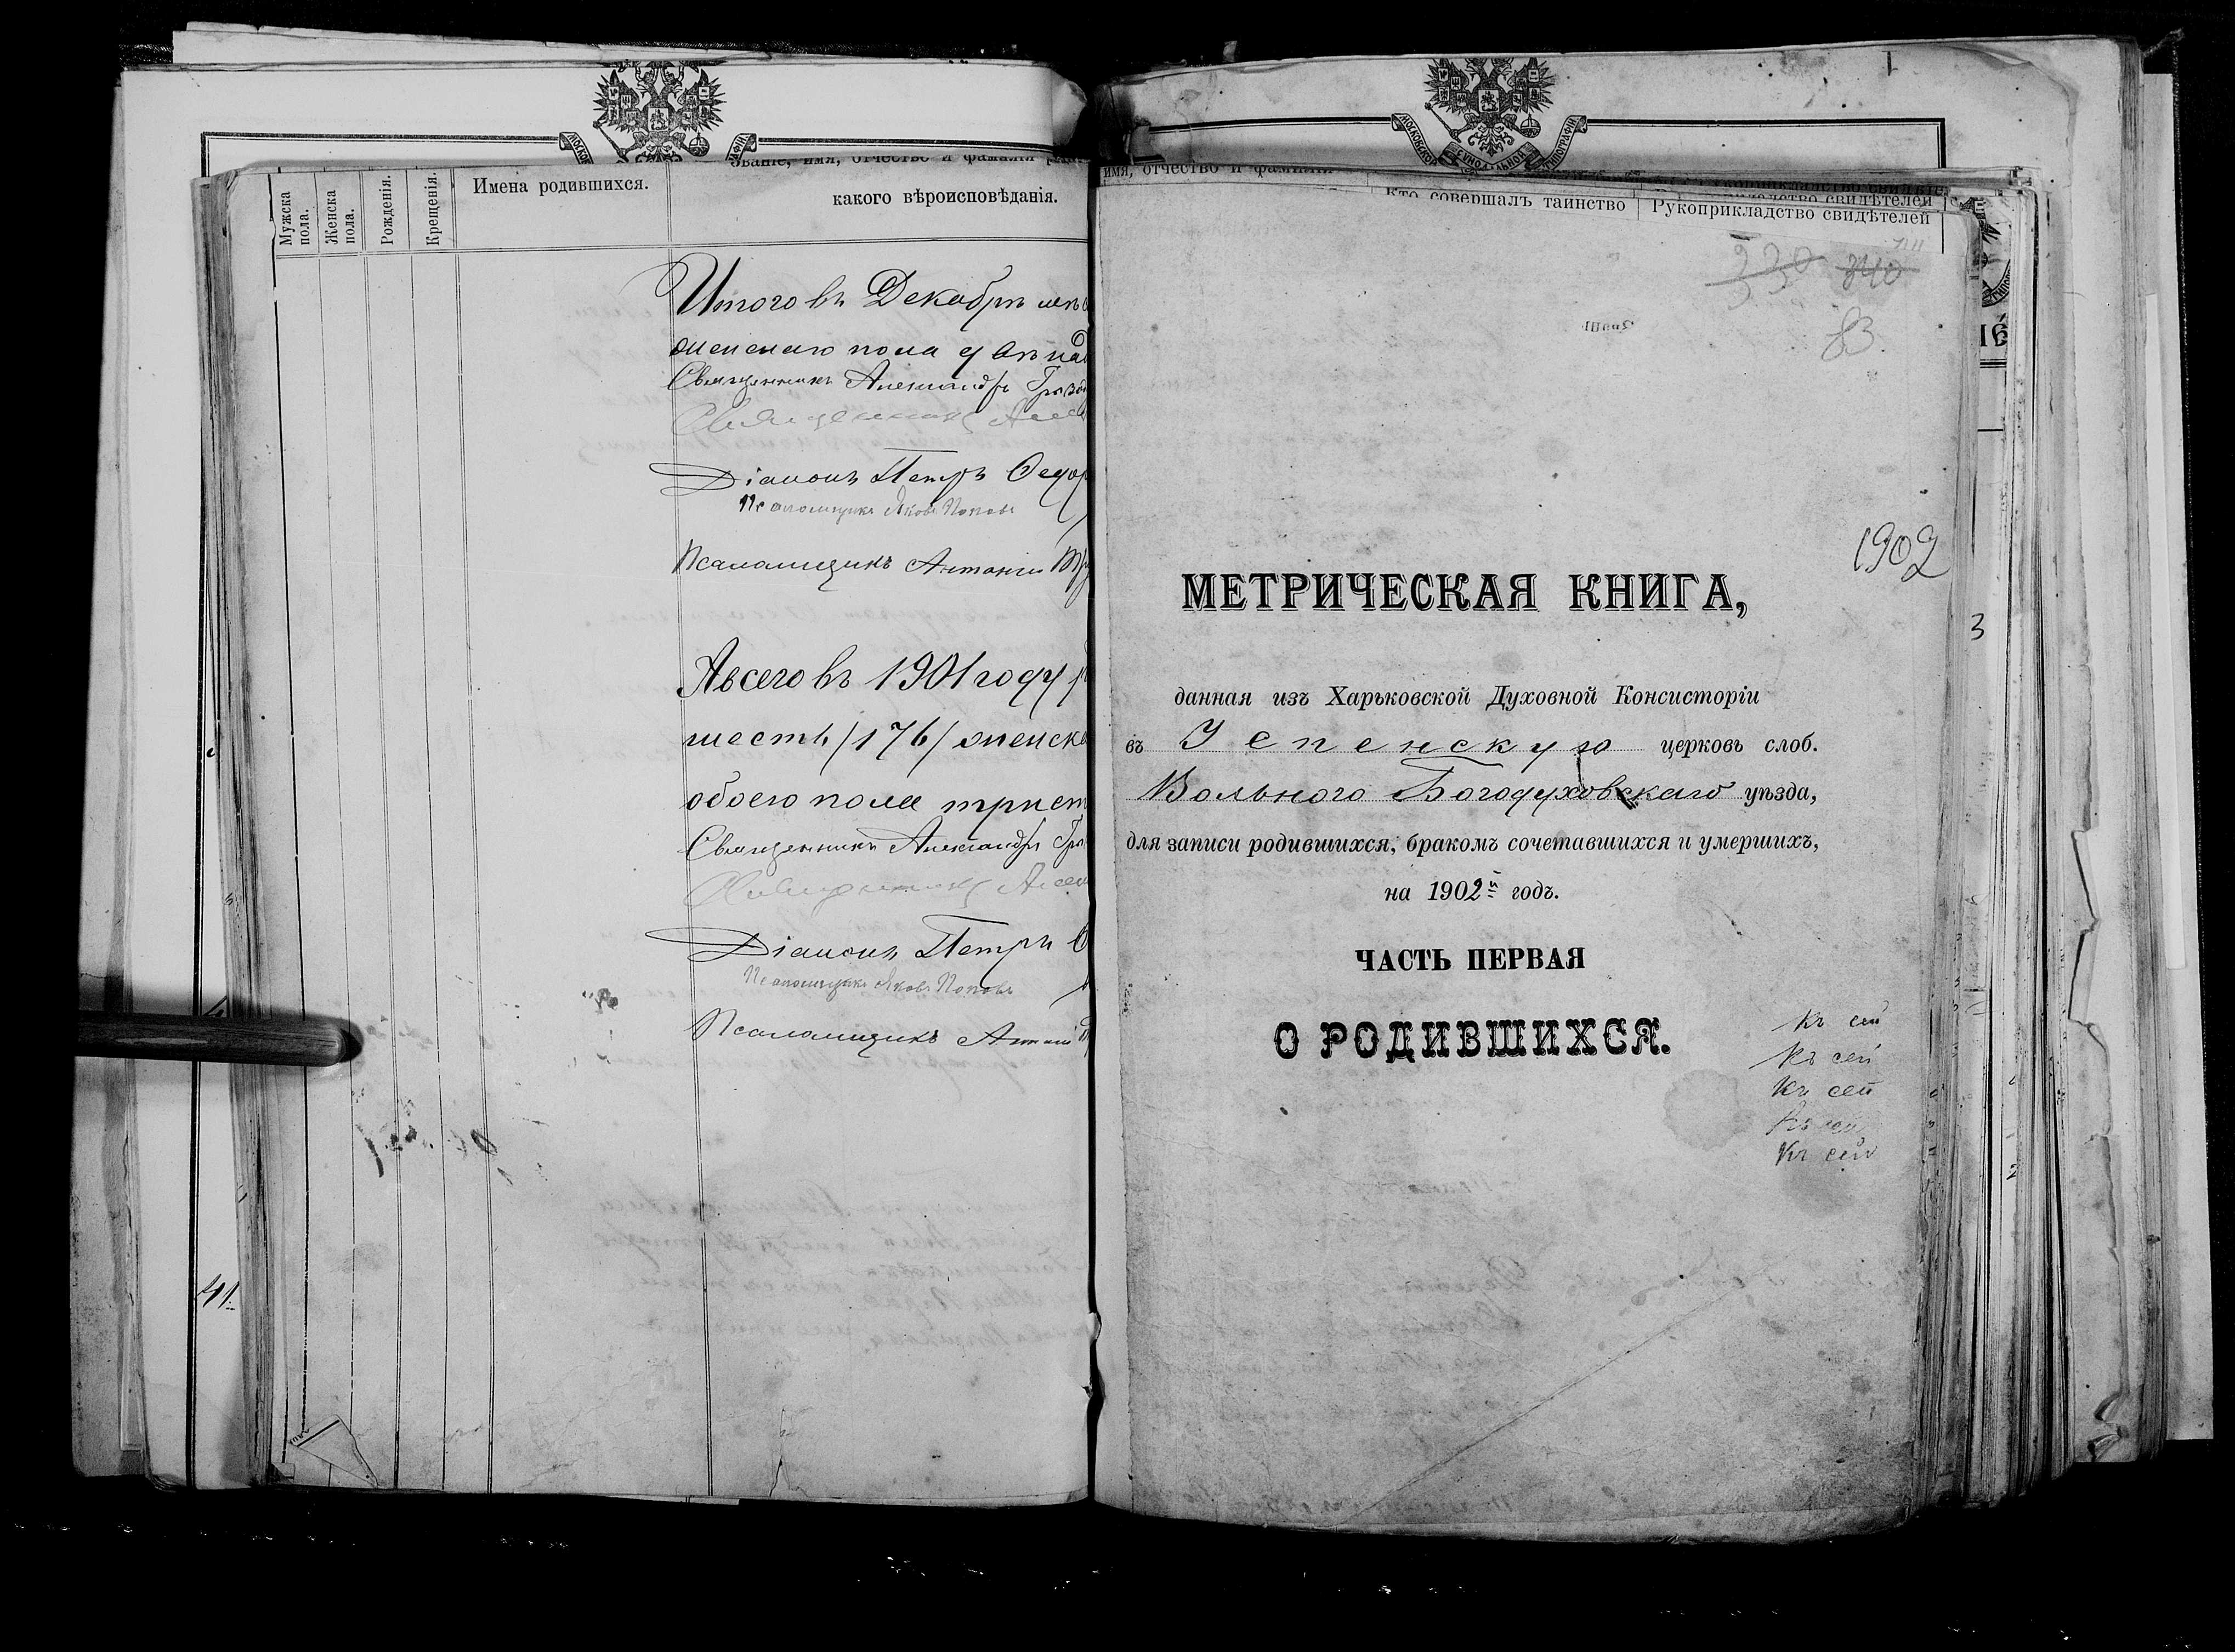 Мужска пола.
Женска пола.
Рожденія.
Крещенія.
Имена родившихся.
Званіе, имя, отчество и фамилія
какого вѣроисповѣданія.
Итого въ Декабрѣ
женскаго пола
Священникъ Александръ
Священникъ
Діаконъ Петръ Ѳедор
Псаломщикъ Яковъ Поповъ
Псаломщикъ Антоній
А всего въ 1901 году
шесть /176/ женска
обоего пола трист
Священникъ Александръ
Священникъ
Діаконъ Петръ
Псаломщикъ Яковъ Поповъ
Псаломщикъ Антоній
41.
МОСКОВСКОЙ СУНОДАЛЬНОЙ ТИПОГРАФІИ
имя, отчество и фамилія
Кто совершалъ таинство
Рукоприкладство свидѣтелей
330 340
83.
1902
МЕТРИЧЕСКАЯ КНИГА,
данная изъ Харьковской Духовной Консисторіи
въ Успенскую церковь слоб.
Вольного Богодуховскаго уѣзда,
для записи родившихся, бракомъ сочетавшихся и умершихъ,
на 1902й годъ.
ЧАСТЬ ПЕРВАЯ
О РОДИВШИХСЯ.
Къ сей
Къ сей
Къ сей
Къ сей
Къ сей
3